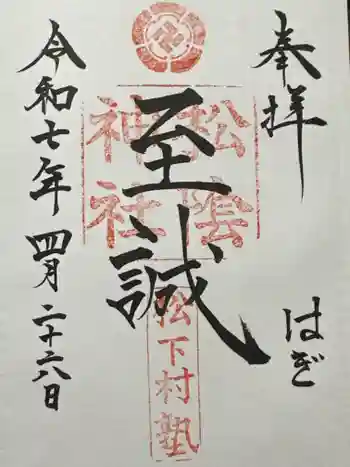 奉拝
はぎ
松陰
神社
至誠
松下村塾
令和七年四月二十六日